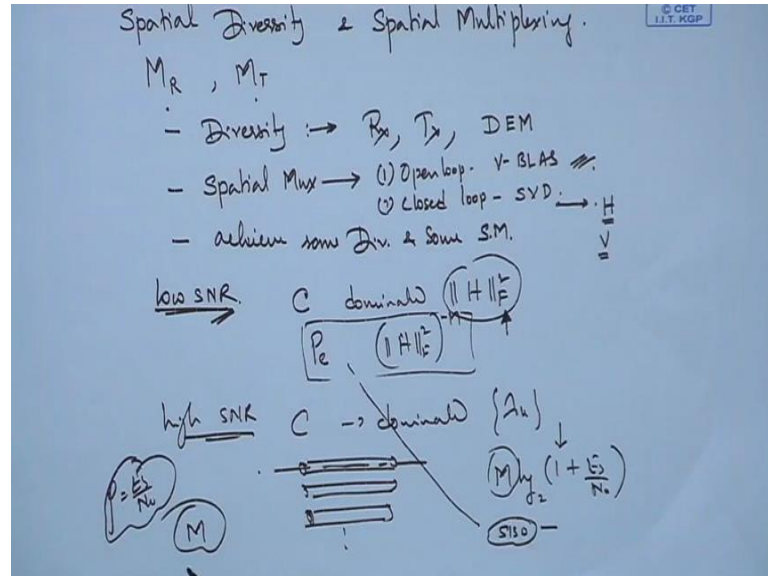 Spatial Diversity & Spatial Multiplexing.
© CET
I.I.T. KGP
M_R , M_T
- Diversity :→ Rx, Tx, DEM
- Spatial Mux → (1) Open loop - V-BLAS
(2) Closed loop - SVD. → H
V
- achieve some Div. & Some S.M.
low SNR. C dominated ||H||_F^2
P_e (||H||_F^2)^-M
high SNR C → dominated {λ_k}
ρ = Es/No
M
M log_2 (1 + Es/No)
SISO -